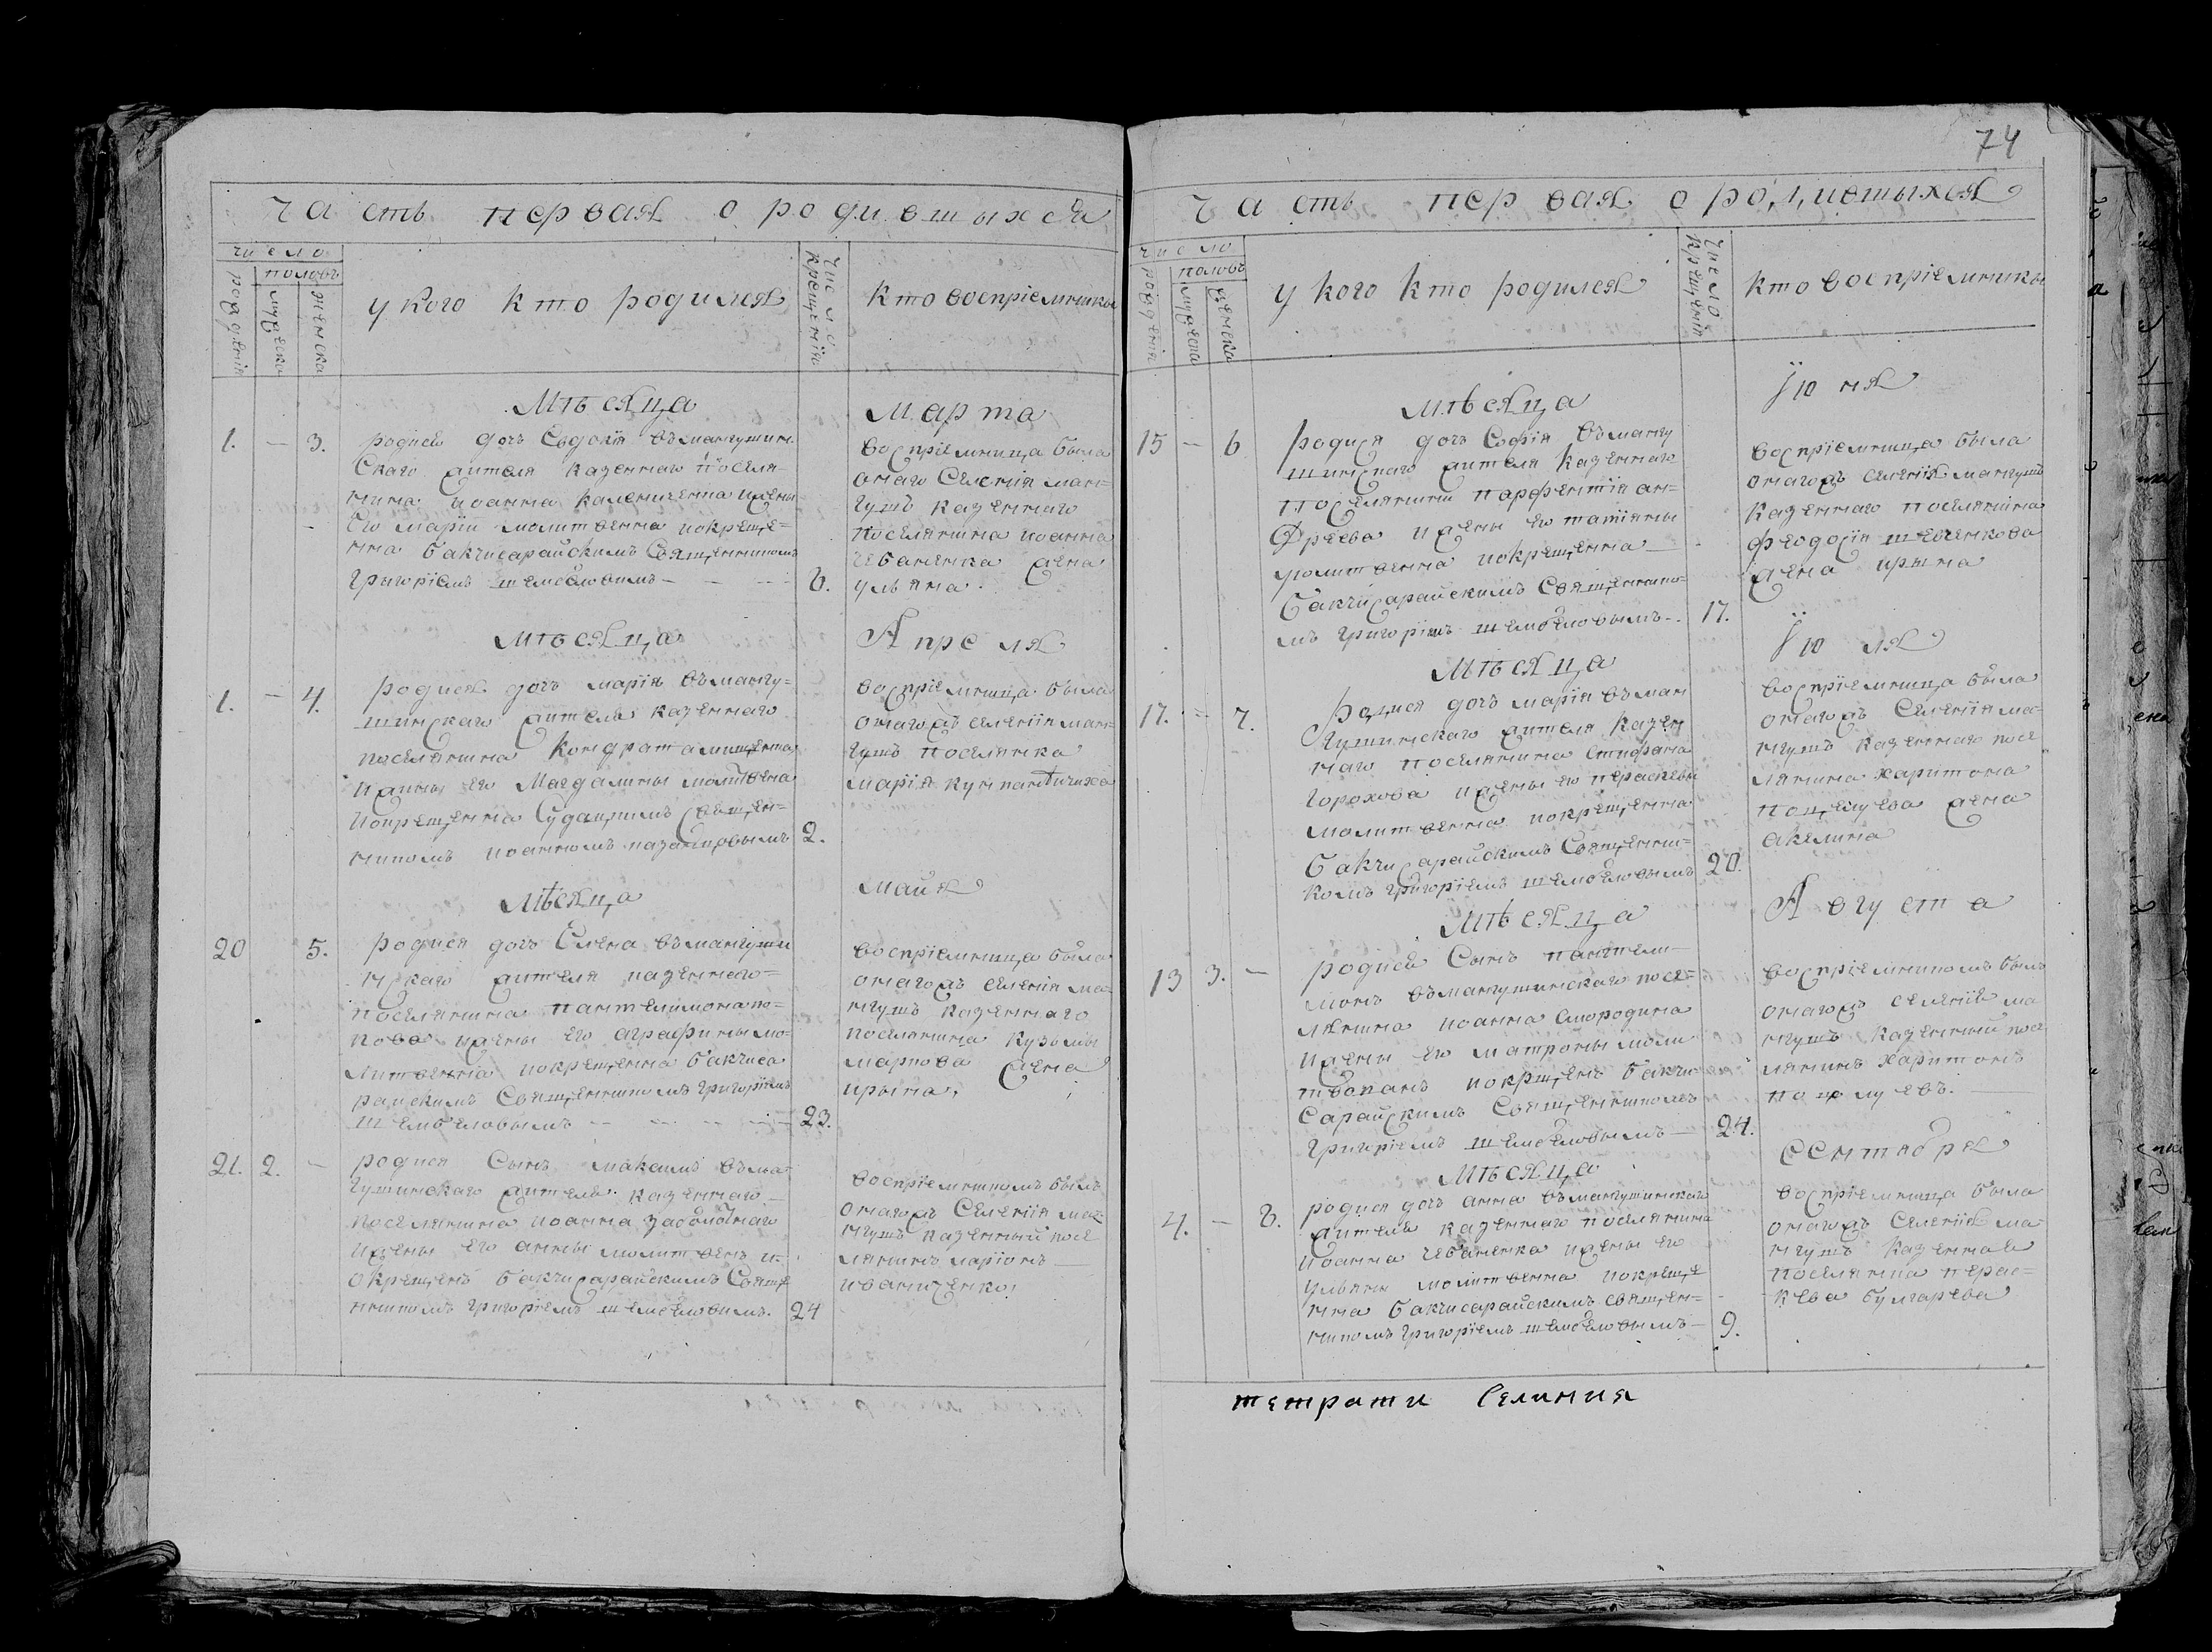 часть первая о родившыхся
число
рождения
половъ
мужеска
женска
у кого кто родился
число крещения
кто восприемники
Мѣсяца
Марта
1. — 3.
родися дочь Евдокия въ мангушин
скаго жителя казеннаго поселя-
нина иоанна калениченка и жены
его марїи молитвенна и окреще-
нна бакчисарайскимъ Священникомъ
григорїемъ шембеловымъ
воспрїемница была
онаго Селенїя ман-
гушъ казеннаго
поселянина иоанна
чебаненка жена
ульяна
Мѣсяца
Апреля
1. — 4.
родися дочь марїя въ мангу-
шинскаго жителя казеннаго
поселянина Кондрата
и жены его Магдалины молитвена
и окрещенна Судацкимъ священ-
никомъ иоанномъ
2.
воспрїемница была
онагожъ селенїя ман-
гушъ поселянка
марїя
Мѣсяца
Майя
20 5.
родися дочь Елена въ мангуши
нскаго жителя казеннаго-
поселянина пантелимона по-
пова и жены его аграфины мо-
литвенна и окрещенна бакчиса
райскимъ Священникомъ григорїемъ
шембеловымъ
23.
воспрїемница была
онагожъ селенїя ма-
нгушъ казеннаго
поселянина кузьмы
маркова жена
ирына
21. 2. —
родися Сынъ Максимъ въ ма-
гушинскаго жителя казеннаго
поселянина иоанна заболотнаго
и жены его анны молитвенъ и
окрещенъ бакчисарайскимъ Свяще
нникомъ григорїемъ шембеловымъ.
24
воспрїемникомъ былъ
онагожъ Селенїя ма-
нгушъ казенный посе
лянинъ ларїонъ
иваниченко
74
часть первая о родившыхся
число
рождения
половъ
мужеска
женска
у кого кто родился
число крещения
кто воспрїемники
Мѣсяца
Їюня
15 — 6
родися дочь Софїя въ мангу
шинскаго жителя казеннаго
поселянина парфентїя ан-
дреева и жены его татїяны
молитвенна и окрещенна
бакчисарайскимъ Священнико-
мъ григорїемъ шембеловымъ
17.
воспрїемница была
онагожъ селенїя мангушъ
казеннаго поселянина
феодосїя шевченкова
жена ирына
Мѣсяца
Їюля
17. — 7.
Родися дочь марїя въ ман
гушинскаго жителя казен
наго поселянина стефана
горохова и жены его параскевы
молитвенна и окрещенна
бакчисарайскимъ Священни-
комъ григорїемъ шембеловымъ
20.
воспрїемница была
онагожъ Селенїя ма-
нгушъ казеннаго посе
лянина харитона
поцелуева жена
акелина
Мѣсяца
Августа
13 3. —
родися Сынъ пантели-
монъ въ мангушинскаго посе-
лянина иоанна смородина
и жены его матроны моли
твованъ и окрщенъ бакчи
сарайскимъ Священникомъ
григорїемъ шембеловымъ
24.
воспрїемникомъ былъ
онагожъ селенїя ма
нгушъ казенный посе
лянинъ харитонъ
поцолуевъ.
Мѣсяца
сентября
4. — 8.
родися дочь анна въ мангушинскаго
жителя казеннаго поселянина
иоанна чебаненка и жены его
ульяны молитвенна и окреще
нна бакчисарайскимъ священ-
никомъ григорїемъ шембеловымъ
9.
воспрїемница была
онагожъ селенїя ма
нгушъ казенная
поселянка парас-
кева булгарева
тетрати Селиния